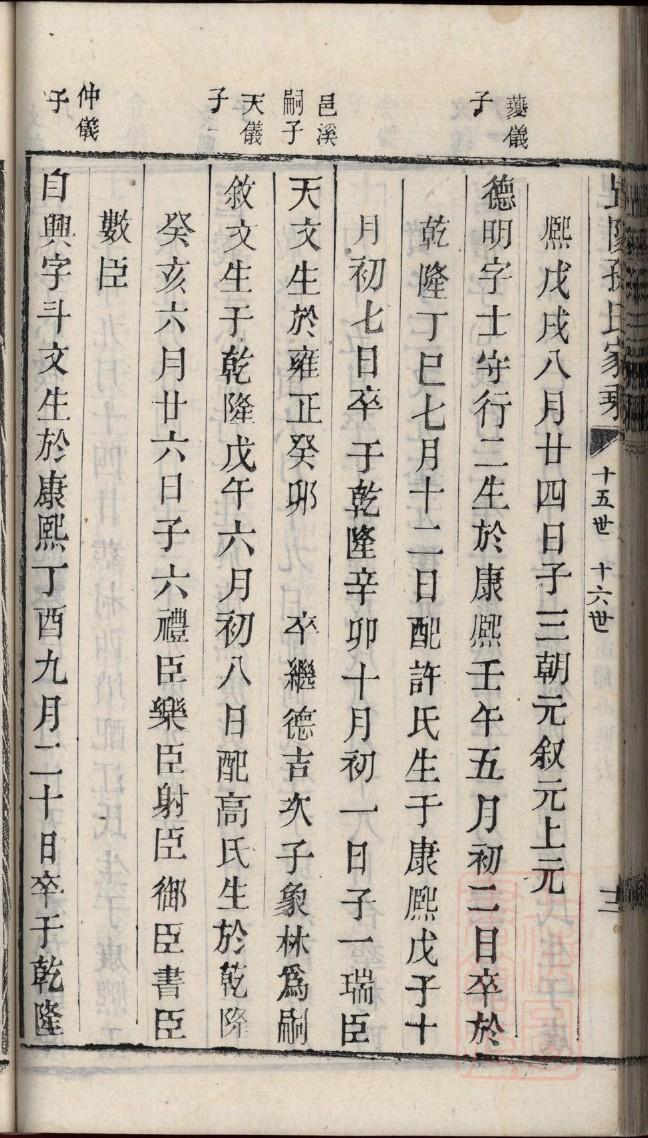 孫氏家乘
十五世 十六世
熈戊戌八月廿四日子三朝元叙元上元
藝儀
子
德明字士守行二生於康熈壬午五月初二日卒於
乾隆丁巳七月十二日配許氏生于康熈戊子十
月初七日卒于乾隆辛卯十月初一日子一瑞臣
邑溪
嗣子
天文生於雍正癸卯 卒繼德吉次子象林爲嗣
天儀
子
敘文生于乾隆戊午六月初八日配高氏生於乾隆
癸亥六月廿六日子六禮臣樂臣射臣御臣書臣
數臣
仲儀
子
自興字斗文生於康熈丁酉九月二十日卒于乾隆